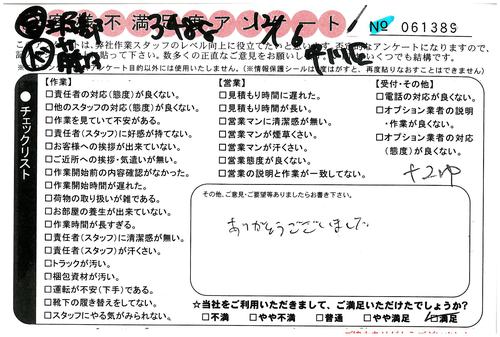 不満足度アンケート
3485 12/6
№ 061389
は、弊社作業スタッフのレベル向上に役立てたいと思います。否定的なアンケートになりますので、
貼って下さい。数多くの正直なご意見をお願いし
いくつでも結構です。
アンケート目的以外には使用いたしません。(※情報保護シールは一度はがすと、再度貼りなおすことはできません)
●チェックリスト
【作業】
□責任者の対応(態度)が良くない。
□他のスタッフの対応(態度)が良くない。
□作業を見ていて不安がある。
□責任者(スタッフ)に好感が持てない。
□お客様への挨拶が出来ていない。
□ご近所への挨拶・気遣いが無い。
□作業開始前の内容確認がなかった。
□作業開始時間が遅れた。
□荷物の取り扱いが雑である。
□お部屋の養生が出来ていない。
□作業時間が長すぎる。
□責任者(スタッフ)に清潔感が無い。
□責任者(スタッフ)が汗くさい。
□トラックが汚い。
□梱包資材が汚い。
□運転が不安(下手)である。
□靴下の履き替えをしてない。
□スタッフにやる気がみられない。
【営業】
□見積もり時間に遅れた。
□見積もり時間が長い。
□営業マンに清潔感が無い。
□営業マンが煙草くさい。
□営業マンが汗くさい。
□営業態度が良くない。
□営業の説明と作業が一致してない。
【受付・その他】
□電話の対応が良くない。
□オプション業者の説明
・作業が良くない。
□オプション業者の対応
(態度)が良くない。
その他、ご意見・ご要望等ありましたらお書き下さい。
ありがとうございました
☆当社をご利用いただきまして、ご満足いただけたでしょうか?
□不満 □やや不満 □普通 □やや満足 □満足